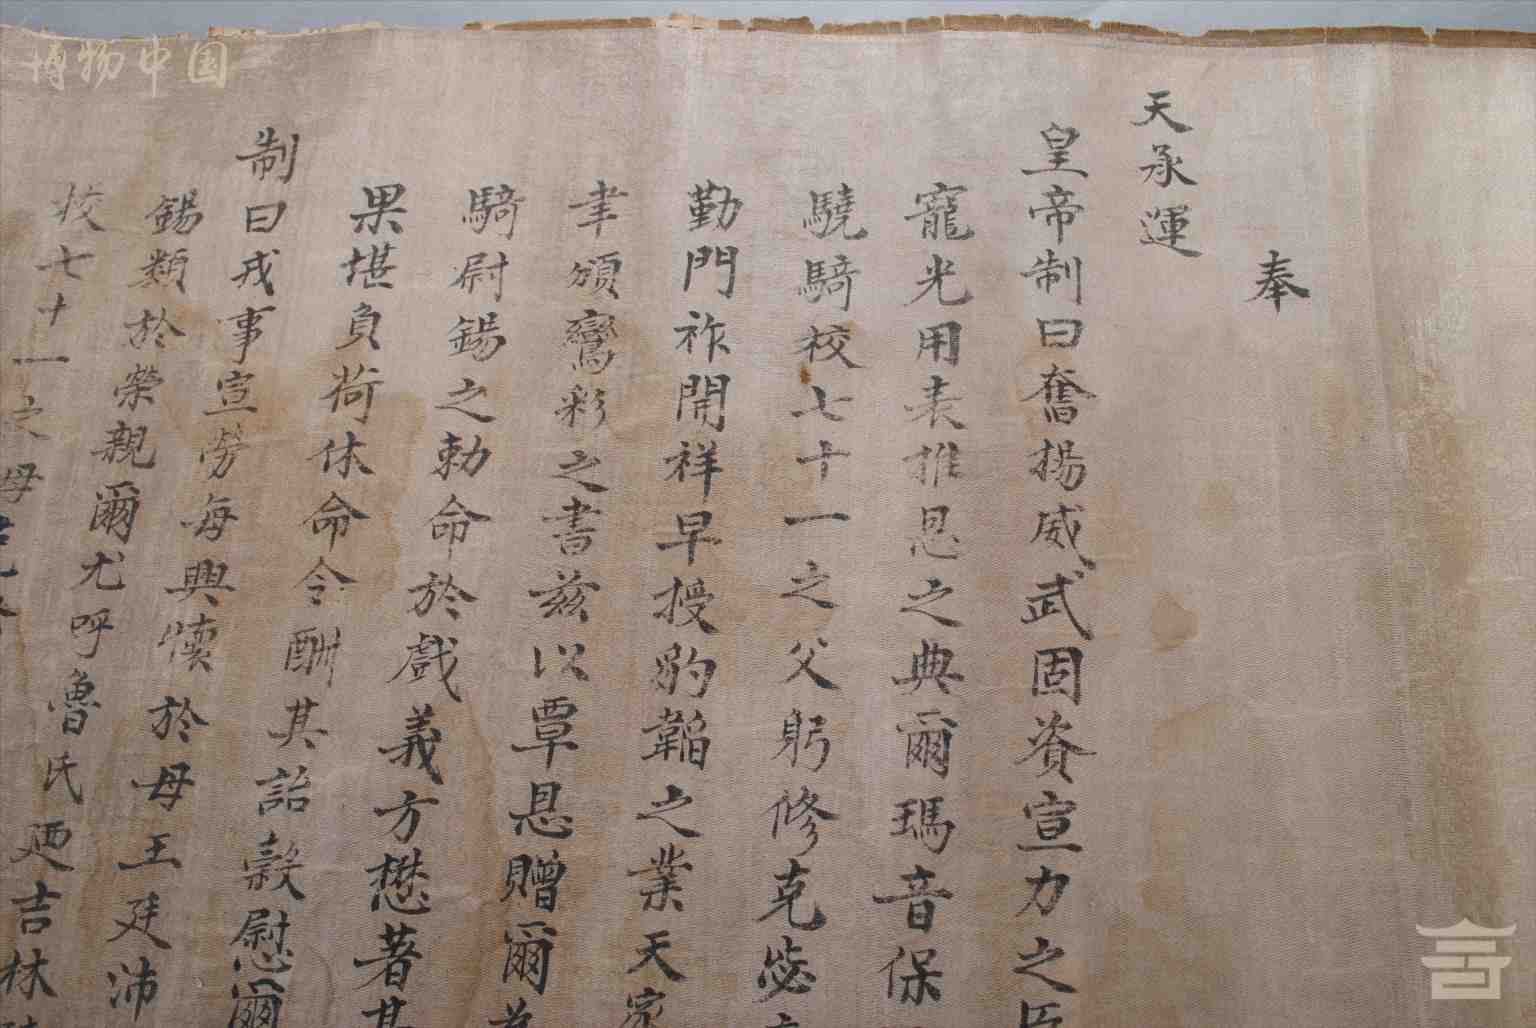 博物中国
奉
天承運
皇帝制曰奮揚威武固資宣力之臣
寵光用表推恩之典爾瑪音保
驍騎校七十一之父躬修克毖
勤門祚開祥早授豹韜之業天家
聿頒鸞彩之書茲以覃恩贈爾為
騎尉錫之勅命於戲義方懋著其
果堪負荷休命令酬其詒穀慰爾
制曰戎事宣勞每興懷於母王廷沛
錫類於榮親爾尤呼魯氏廼吉林
校七十一之母